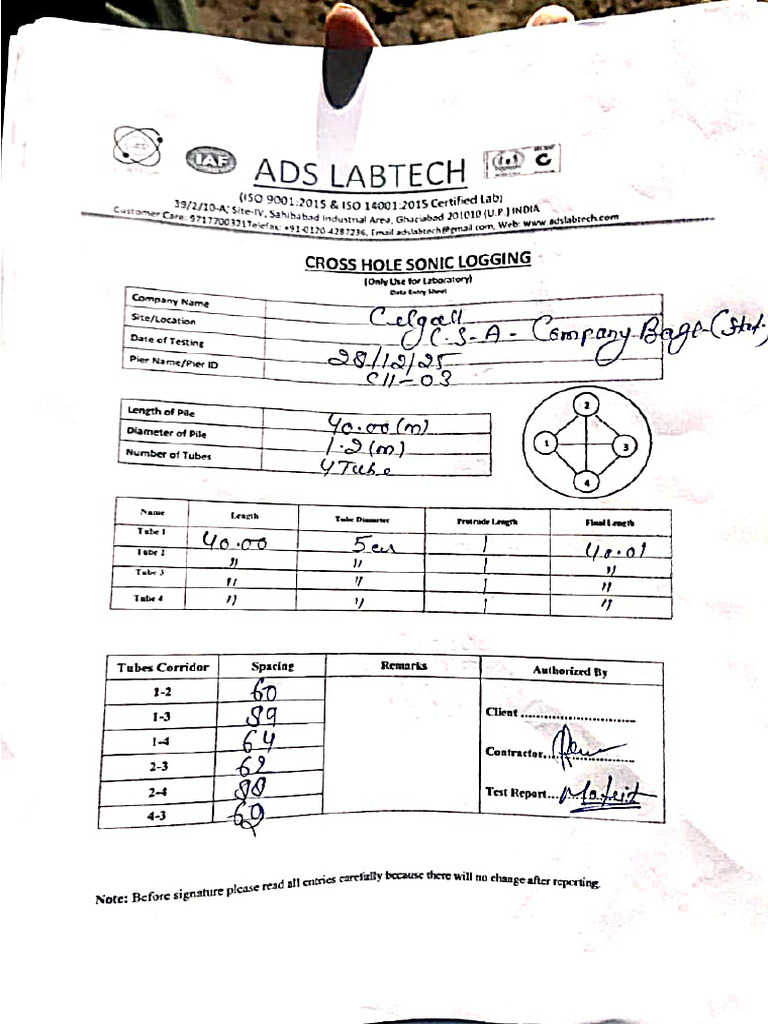 IAF
ADS LABTECH
C
(ISO 9001:2015 & ISO 14001:2015 Certified Lab)
39/2/10-A, Site-IV, Sahibabad Industrial Area, Ghaziabad 201010 (U.P.) INDIA
Customer Care: 9717700321 Telefax: +91-0120-4287236, Email adslabtech@gmail.com, Web: www.adslabtech.com
CROSS HOLE SONIC LOGGING
(Only Use for Laboratory)
Data Entry Sheet
Company Name
Site/Location C.S-A-Company Bage-
Date of Testing 28/12/25
Pier Name/Pier ID C11-03
Length of Pile 40.00 (m)
Diameter of Pile 1.2 (m)
Number of Tubes 4 Tube
2
1 3
4
Name Length Tube Diameter Protrude Length Final Length
Tube 1 40.00 5cm 1 40.01
Tube 2 " " 1 "
Tube 3 " " 1 "
Tube 4 " " 1 "
Tubes Corridor Spacing Remarks Authorized By
1-2 60
1-3 89
1-4 64
2-3 62
2-4 88
4-3
Client
Contractor
Test Report
Note: Before signature please read all entries carefully because there will no change after reporting.